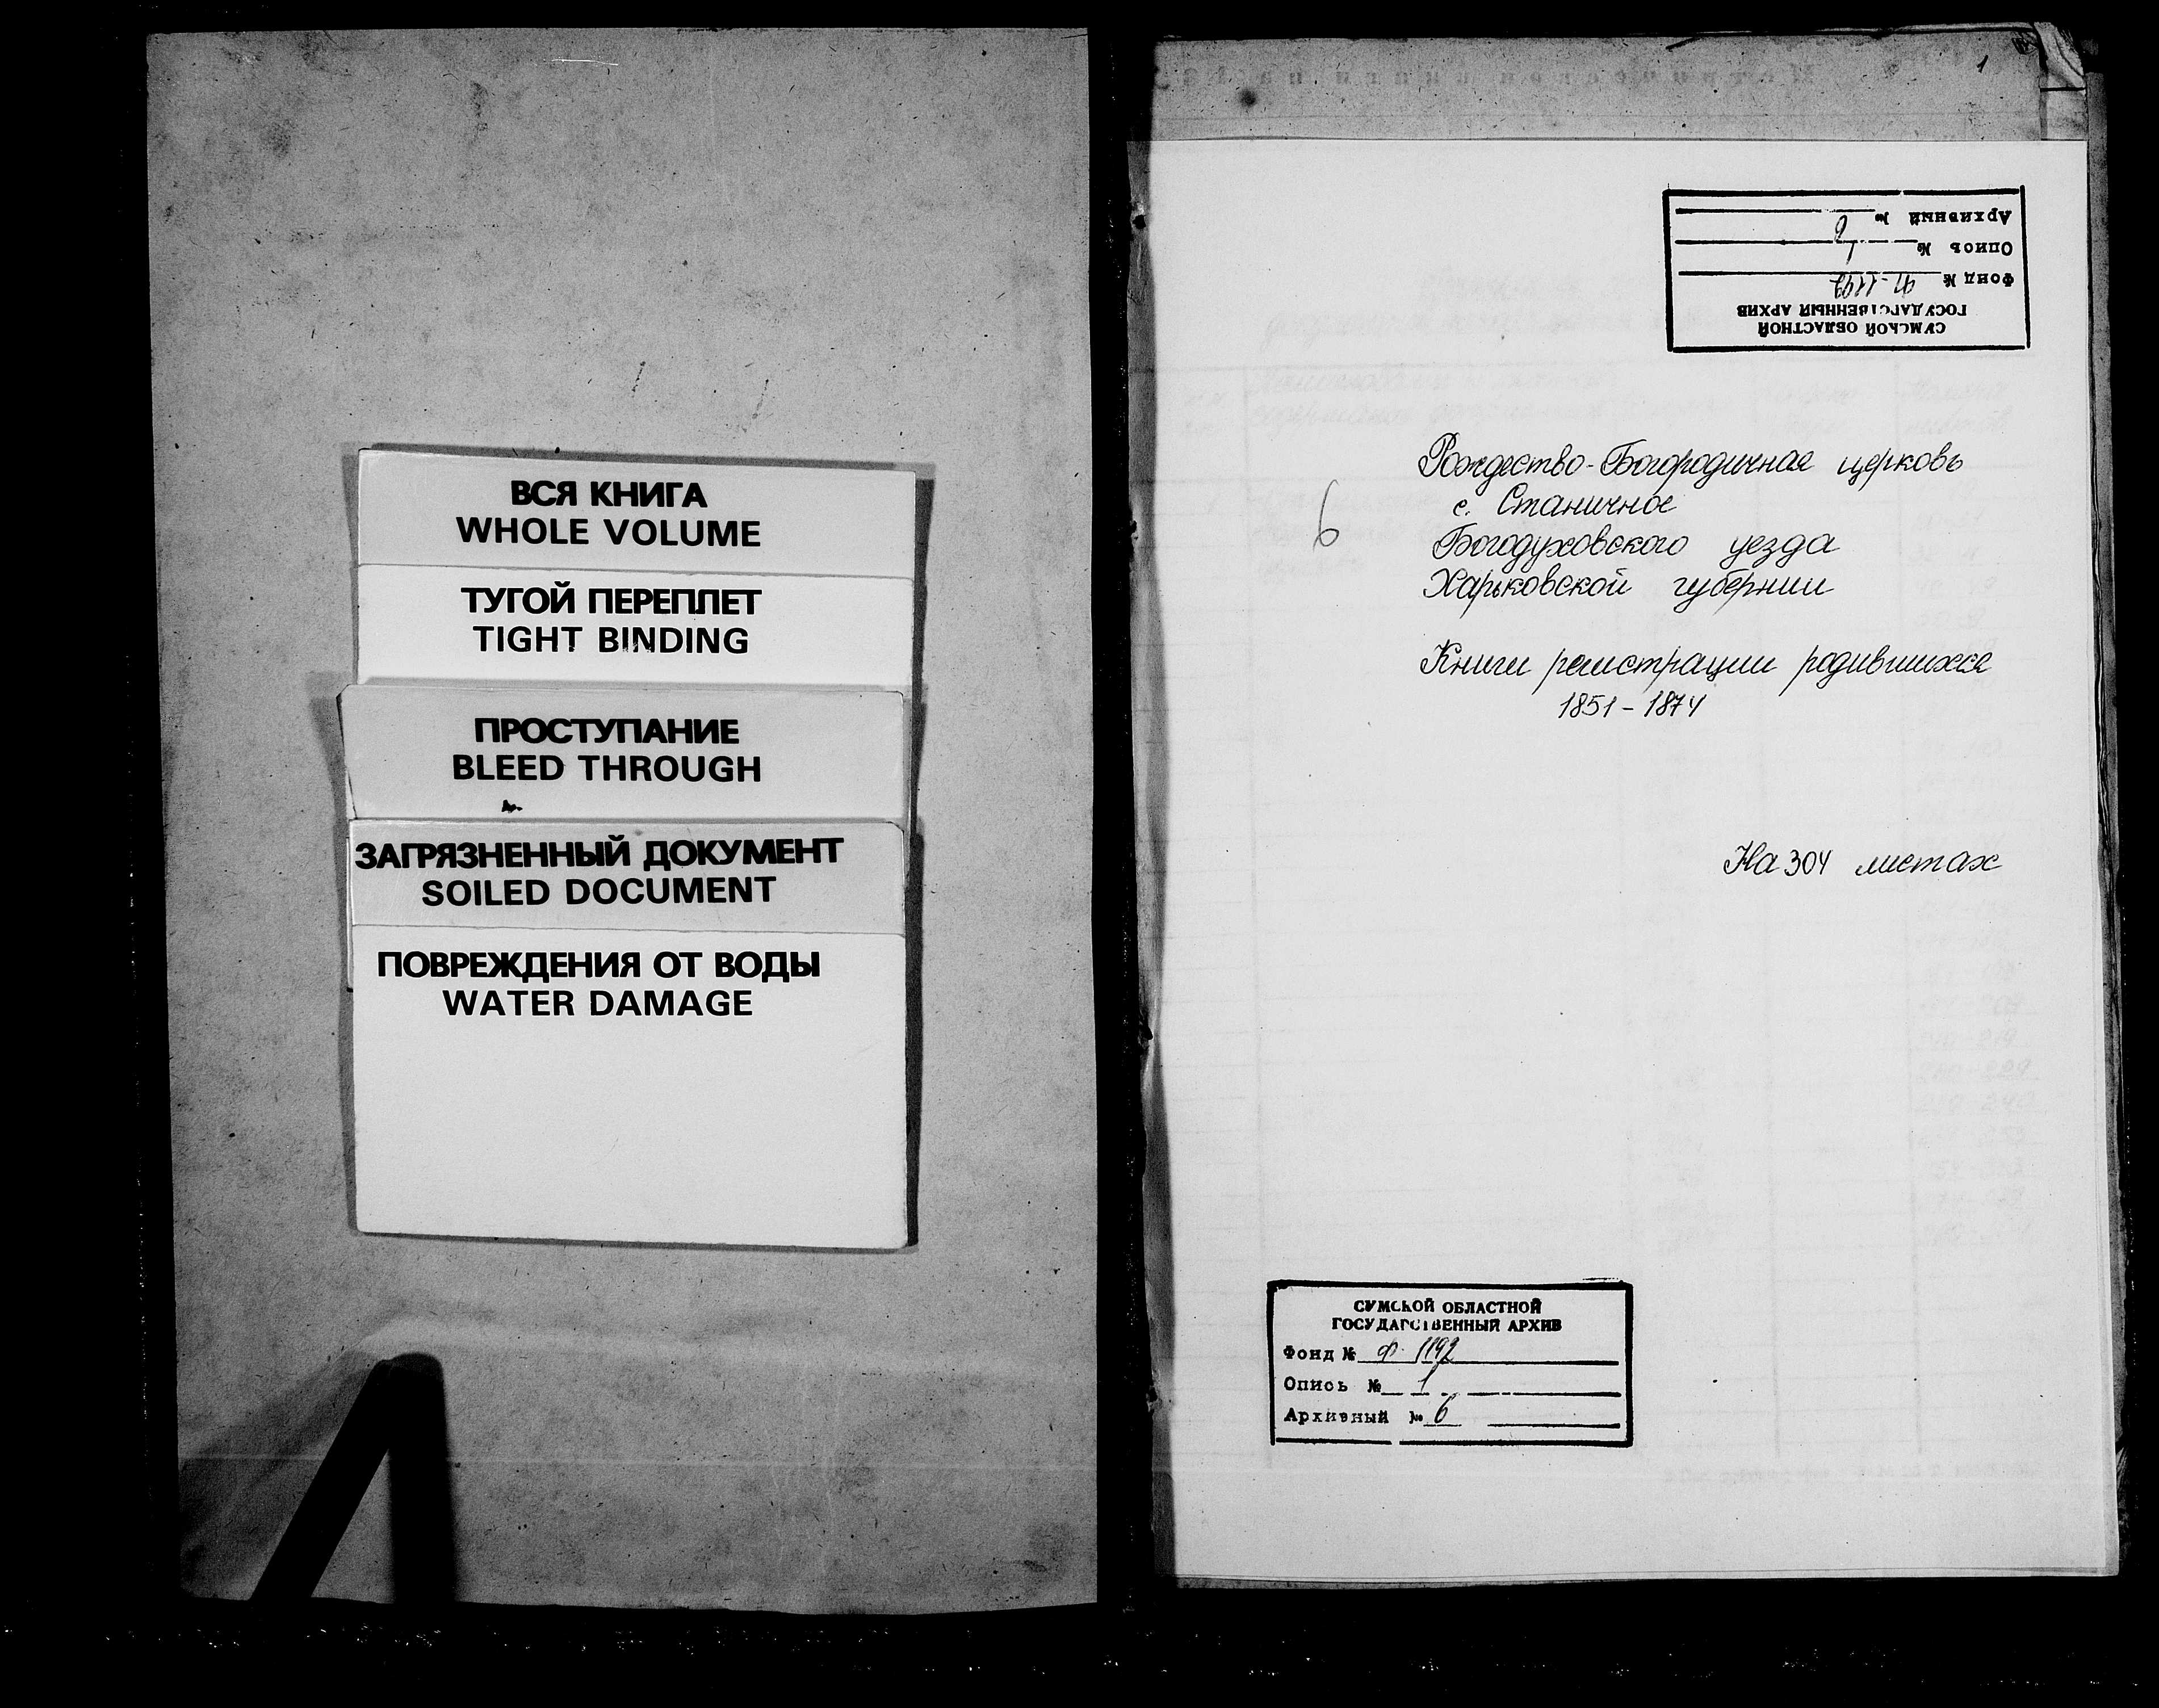 ВСЯ КНИГА
WHOLE VOLUME
ТУГОЙ ПЕРЕПЛЕТ
TIGHT BINDING
ПРОСТУПАНИЕ
BLEED THROUGH
ЗАГРЯЗНЕННЫЙ ДОКУМЕНТ
SOILED DOCUMENT
ПОВРЕЖДЕНИЯ ОТ ВОДЫ
WATER DAMAGE
1
СУМСКОЙ ОБЛАСТНОЙ
ГОСУДАРСТВЕННЫЙ АРХИВ
Фонд № 1192
Опись № 1
Архивный № 6
Рождество-Богородичная церковь
с. Станичное
6
Богодуховского уезда
Харьковской губернии
Книги регистрации родившихся
1851-1874
На 304 листах
СУМСКОЙ ОБЛАСТНОЙ
ГОСУДАРСТВЕННЫЙ АРХИВ
Фонд № Ф. 1192
Опись № 1
Архивный № 6